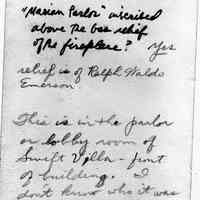 "Marian Parlor" inscribed
above the bas relief
of the fireplace? Yes
relief is of Ralph Waldo
Emerson
This is in the parlor
or lobby room of
Swift Villa - front
of building. I
don't know who it was